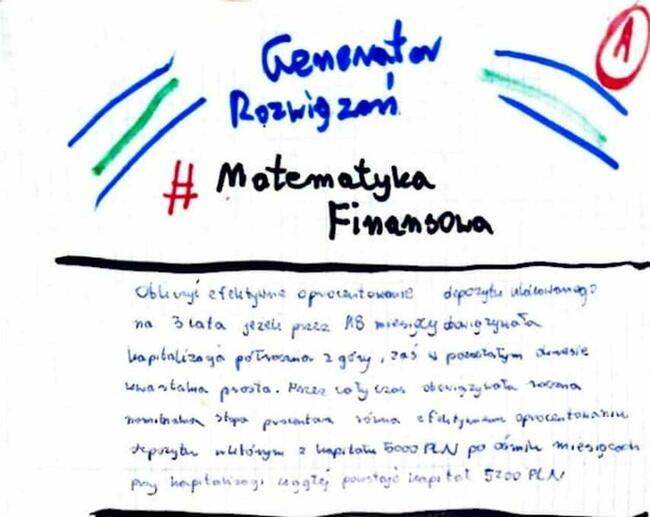 A
Generator
Rozwiązań
# Matematyka
Finansowa
Obliczyć efektywne oprocentowanie depozytu ulokowanego
na 3 lata jeżeli przez 18 miesięcy obowiązywała
kapitalizacja półroczna z góry, zaś w pozostałym okresie
kwartalna prosta. Przez cały czas obowiązywała roczna
nominalna stopa procentowa równa efektywnemu oprocentowaniu
depozytu w którym z kapitału 5000 PLN po ośmiu miesiącach
przy kapitalizacji ciągłej powstaje kapitał 5200 PLN